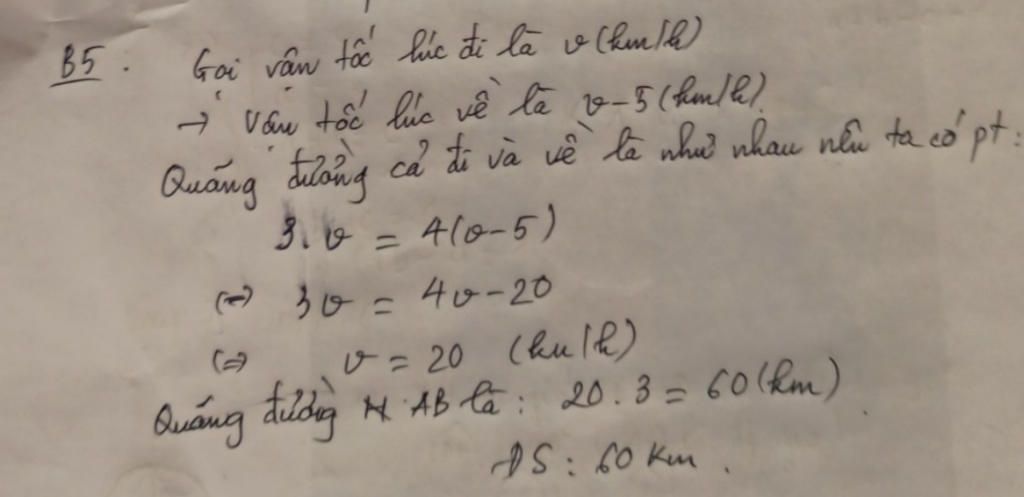 B5. Gọi vận tốc lúc đi là v (km/h)
→ Vận tốc lúc về là v-5 (km/h)
Quãng đường cả đi và về là như nhau nên ta có pt:
3.v = 4(v-5)
(=) 3v = 4v-20
(=) v = 20 (km/h)
Quãng đường AB là: 20.3 = 60 (km).
ĐS: 60 km.